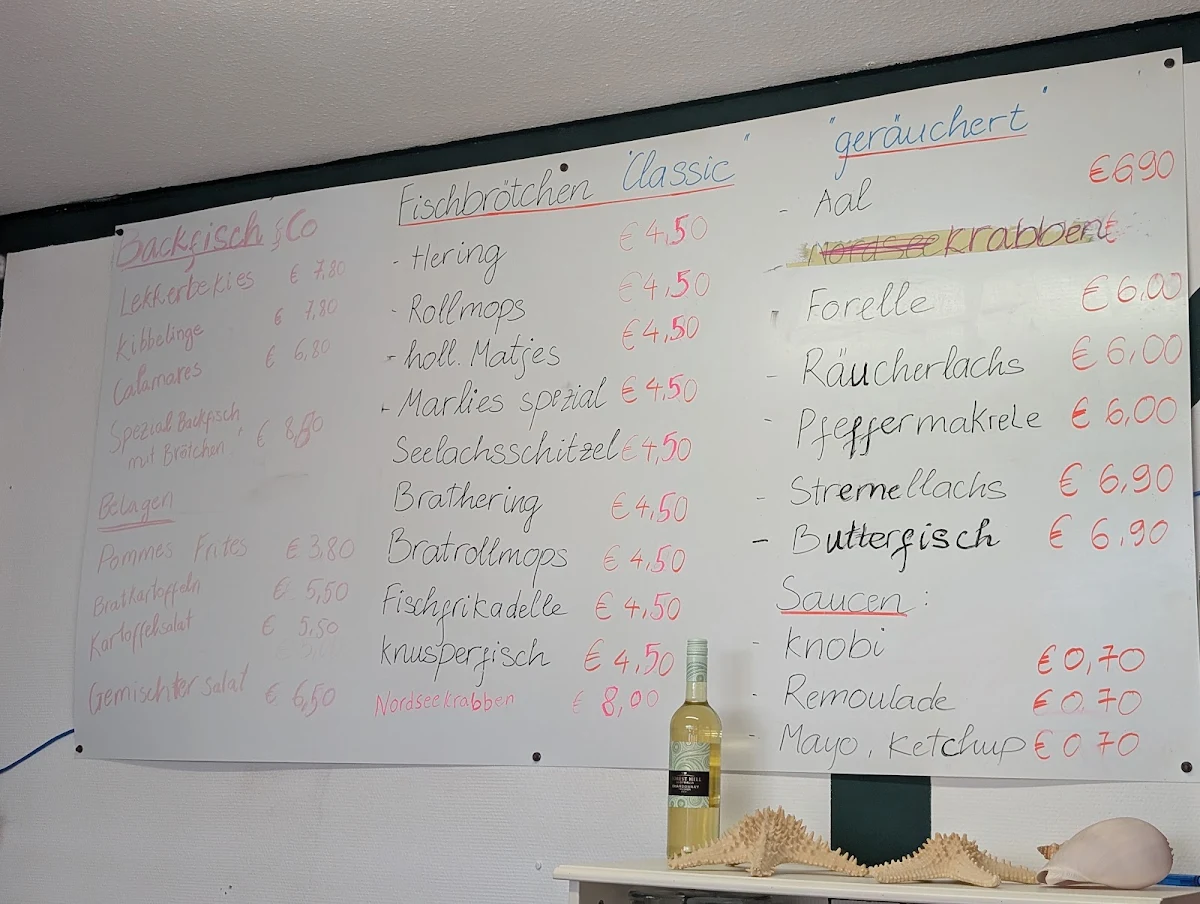 Backfisch & Co
Lekkerbekies € 7,80
Kibbelinge € 7,80
Calamares € 6,80
Spezial Backfisch
mit Brötchen € 8,50
Belagen
Pommes Frites € 3,80
Bratkartoffeln € 5,50
Kartoffelsalat € 5,50
Gemischter Salat € 6,50
Fischbrötchen "Classic"
- Hering € 4,50
- Rollmops € 4,50
- holl. Matjes € 4,50
- Marlies spezial € 4,50
Seelachsschitzel € 4,50
Brathering € 4,50
Bratrollmops € 4,50
Fischfrikadelle € 4,50
Knusperfisch € 4,50
Nordseekrabben € 8,00
"geräuchert"
- Aal € 6,90
Nordseekrabben €
- Forelle € 6,00
- Räucherlachs € 6,00
- Pfeffermakrele € 6,00
- Stremellachs € 6,90
- Butterfisch € 6,90
Saucen:
- Knobi € 0,70
- Remoulade € 0,70
- Mayo, Ketchup € 0 70
CHARDONNAY